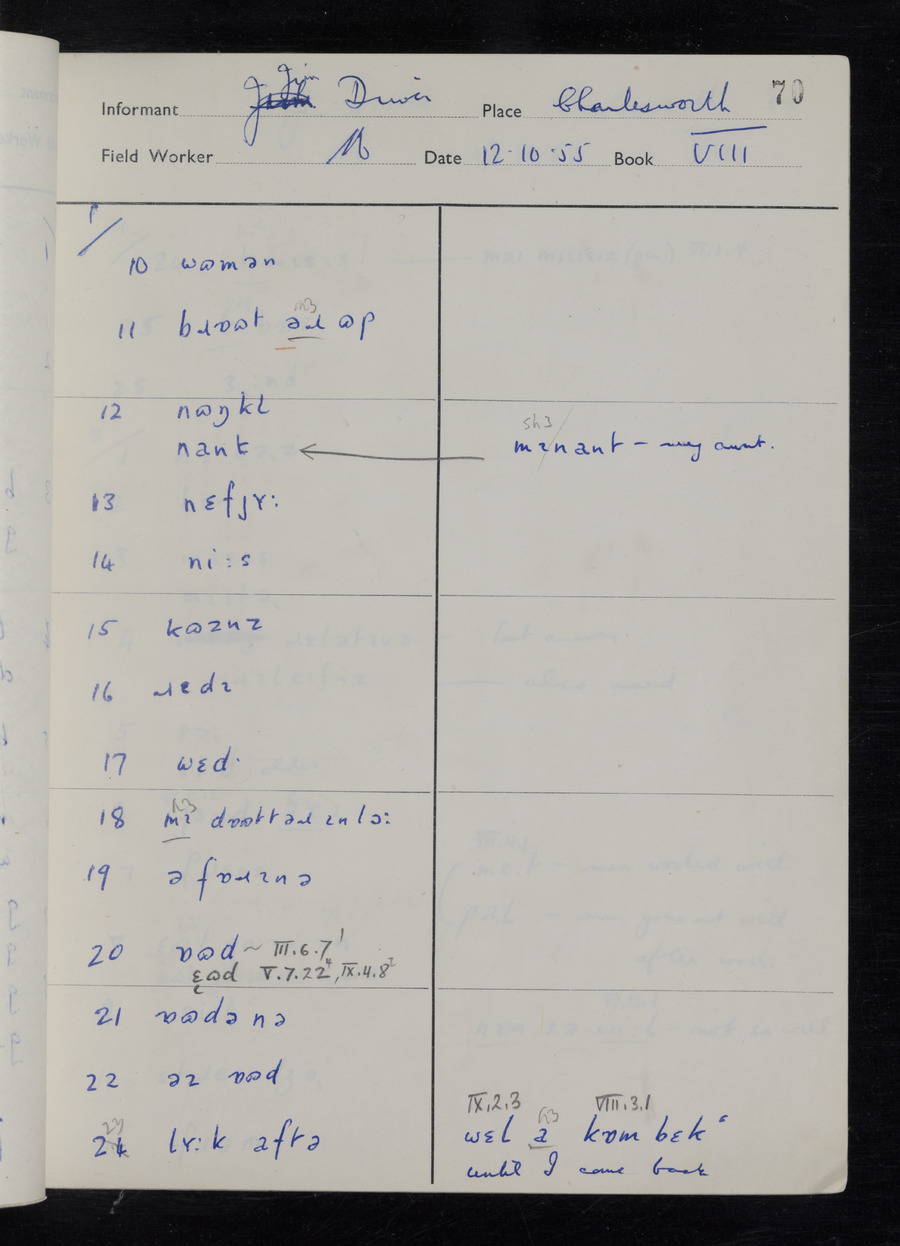 Informant Jim Driver Place Charlesworth 70
Field Worker Date 12.10.55 Book VIII
1/
10 wʊmən
11 bɹɒʊt əɹ ʊp
12 nʊŋkl
nant ← mɪnant – my aunt.
13 nɛfjʏ:
14 ni:s
15 kʊznz
16 ɹedɪ
17 wɛd
18 mɪ dɒʊttəɹ ɪnlɔ:
19 ə fɒɹɪnə
20 ɒʊd ~ III.6.7¹
ɛʊd V.7.22⁴, IX.4.8²
21 ɒʊdənə
22 əz ɒʊd
23 lʏ:k aftə
IX.2.3 VIII.3.1
wɛl a kʊm bɛk
until I come back